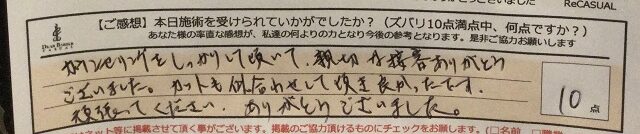 ReCASUAL
【ご感想】本日施術を受けられていかがでしたか？（ズバリ10点満点中、何点ですか？）
あなた様の率直な感想が、私達の何よりの力となり今後の参考となります。是非ご協力お願いします
カウンセリングをしっかりして頂いて、親切な接客ありがとう
ございました。カットも似合わせして頂き良かったです。
頑張ってください。ありがとうございました。
10 点
ネット等に掲載させて頂く事がございます。掲載のご協力頂けるものにチェックをお願いします（□名前